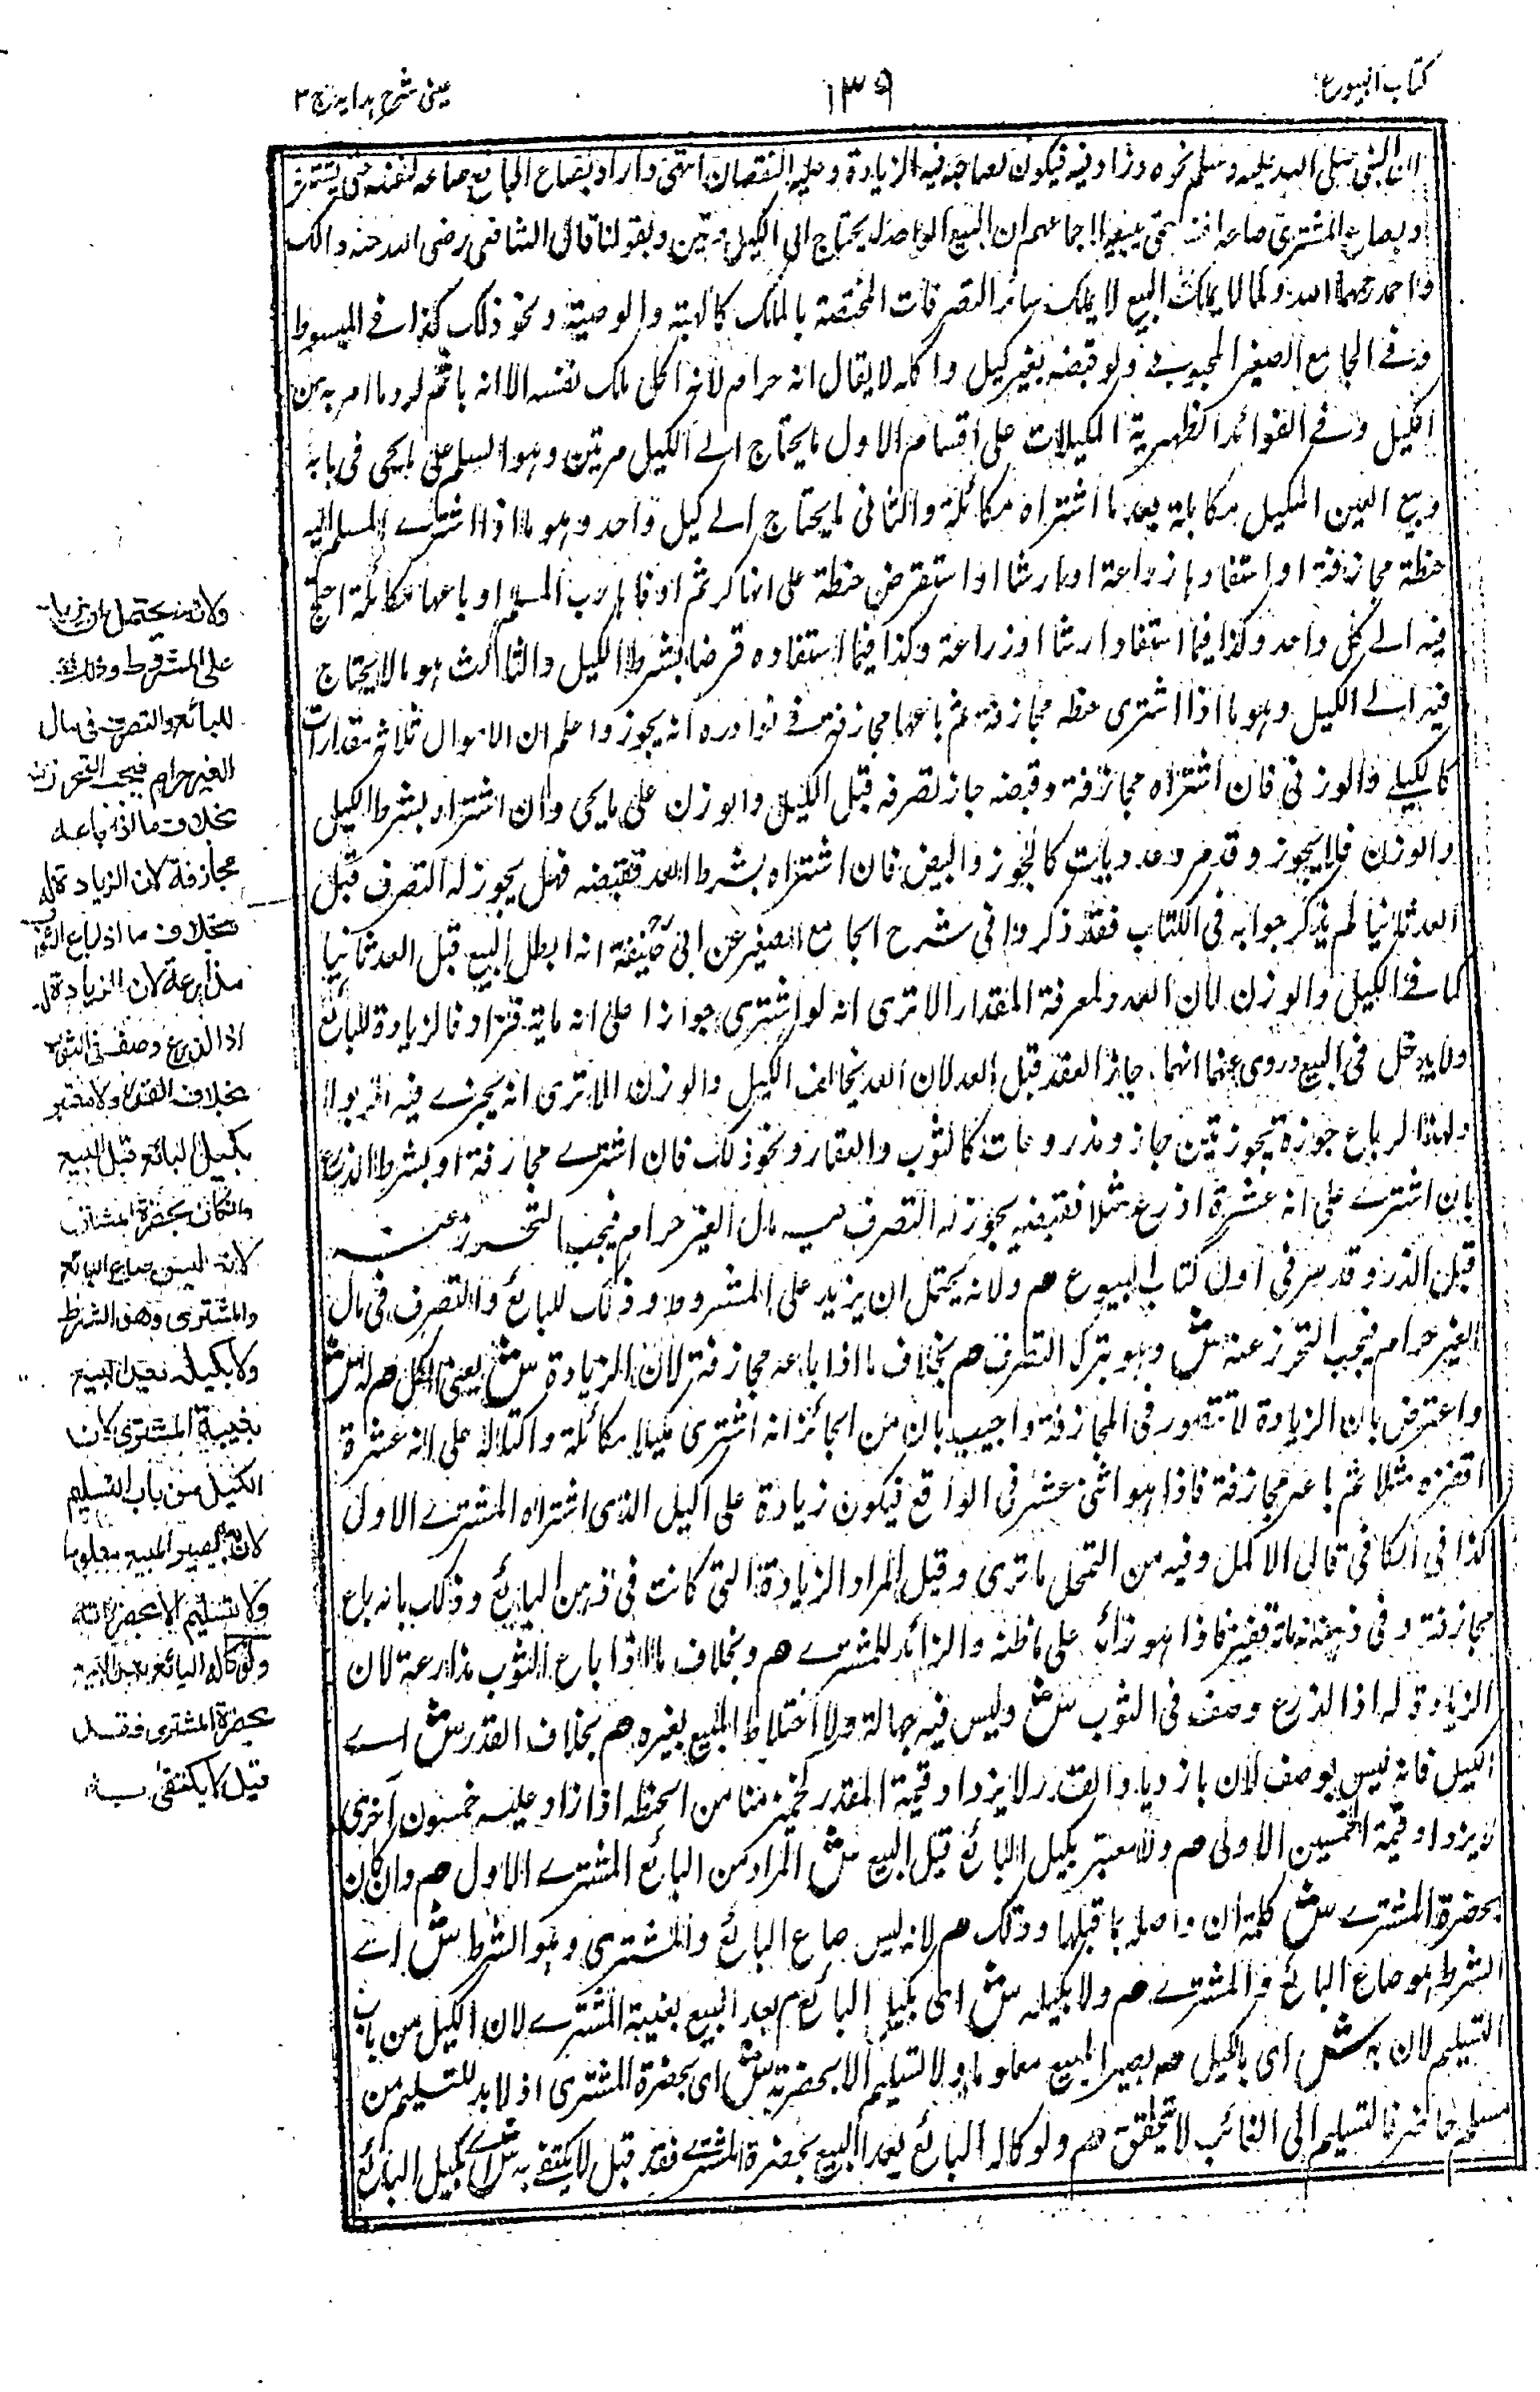 كتاب البيوع
١٣٩
عينى شرح هدايه ج ٣
الى النبى صلى الله عليه وسلم نحوه وزاد فيه فيكون لصاحبه الزيادة وعليه النقصان انتهى واراد بصاع البائع صاعه لنفسه حين يشترى
وبصاع المشترى صاعه لنفسه حين يبيعه لاجماعهم ان البيع الواحد لا يحتاج الى الكيل مرتين وبقولنا قال الشافعى رضى الله عنه ومالك
واحمد رحمهما الله وكما لا يملك البيع لا يملك سائر التصرفات المختصة بالملك كالهبة والوصية ونحو ذلك كذا فى المبسوط
وفى الجامع الصغير المحبوبى ولو قبضه بغير كيل واكله لا يقال انه حرام لانه اكل ملك نفسه الا انه ياثم لرد ما امر به من
الكيل وفى الفوائد الظهيرية المكيلات على اقسام الاول ما يحتاج الى الكيل مرتين وهو السلم على ما يجى فى بابه
وبيع العين المكيل مكايلة بعد ما اشتراه مكائلة والثانى ما يحتاج الى كيل واحد وهو ما اذا اشترى المسلم اليه
حنطة مجازفة او استفادها زراعة او ارثا او استقرض حنطة على انها كر ثم اوفاها رب السلم او باعها مكائلة احتاج
فيه الى كيل واحد وكذا فيما استفاد ارثا او زراعة وكذا فيما استفاده قرضا بشرط الكيل والثالث هو ما لا يحتاج
فيه الى الكيل وهو ما اذا اشترى حنطه مجازفة ثم باعها مجازفة وفى نوادره انه يجوز واعلم ان الاموال ثلاثه مقدارات
كالكيلى والوزنى فان اشتراه مجازفة وقبضه جاز تصرفه قبل الكيل والوزن على ما يجى وان اشتراه بشرط الكيل
والوزن فلا يجوز وقد مر وعدديات كالجوز والبيض فان اشتراه بشرط العد فقبضه فهل يجوز له التصرف قبل
العد ثانيا لم يذكر جوابه فى الكتاب فقد ذكروا فى شرح الجامع الصغير عن ابى حنيفة انه ابطل البيع قبل العد ثانيا
كما فى الكيل والوزن لان العد ولمعرفة المقدار الا ترى انه لو اشترى جوازا على انه ماية فزاد فالزيادة للبائع
ولا يدخل فى البيع وروى عنهما انهما جاز العقد قبل العد لان العد يخالف الكيل والوزن الا ترى انه يجرى فيه الربوا
ولهذا لو باع جوزة بجوزتين جاز ومذروعات كالثوب والعقار ونحو ذلك فان اشترى مجازفة او بشرط الذرع
بان اشترى على انه عشرة اذرع مثلا فقبضه يجوز له التصرف مال الغير حرام فيجب التحرز عنه
قبل الذرع وقد مر فى اول كتاب البيوع هم ولانه يحتمل ان يزيد على المشروط وذلك للبائع والتصرف فى مال
الغير حرام فيجب التحرز عنه ش وهو بترك التصرف هم بخلاف ما اذا باعه مجازفة لان الزيادة ش يعنى الكل هم له ش
واعترض بان الزيادة لا تتصور فى المجازفة واجيب بان من الجائز انه اشترى مكيلا مكائلة واكتاله على انه عشرة
اقفزه مثلا ثم باعه مجازفة فاذا هو اثنى عشر فى الواقع فيكون زيادة على الكيل الذى اشتراه المشترى الاول
كذا فى الكافى قال الاكمل وفيه من التمحل ما ترى وقيل المراد الزيادة التى كانت فى ذهن البائع وذلك بانه باع
مجازفة وفى ذهنه انه مائة قفيز فاذا هو زائد على ما ظنه والزائد للمشترى هم وبخلاف ما اذا باع الثوب مذارعة لان
الزيادة له اذ الذرع وصف فى الثوب ش وليس فيه جهالة ولا اختلاط المبيع بغيره هم بخلاف القدر ش اى
الكيل فانه ليس بوصف لان بازدياد القدر لا يزداد قيمة المقدر كخمسين منا من الحنطه اذا زاد عليه خمسون اخرى
لا يزداد قيمة الخمسين الاولى هم ولا معتبر بكيل البائع قبل البيع ش المراد من البائع المشترى الاول هم وان كان
بحضرة المشترى ش كلمة ان واصلة بما قبلها وذلك هم لانه ليس صاع البائع والمشترى وهو الشرط ش اى
الشرط هو صاع البائع والمشترى هم ولا بكيله ش اى بكيل البائع م بعد البيع بغيبة المشترى لان الكيل من باب
التسليم لان به ش اى بالكيل هم يصير المبيع معلوما ولا تسليم الا بحضرته ش اى بحضرة المشترى اذ لا بد للتسليم من
مسلم حاضر فالتسليم الى الغائب لا يتحقق هم ولو كاله البائع بعد البيع بحضرة المشترى فقد قيل لا يكتفى به ش اى بكيل البائع
ولانه يحتمل ان يزيد
على المشروط وذلك
للبائع والتصرف فى مال
الغير حرام فيجب التحرز عنه
بخلاف ما اذا باعه
مجازفة لان الزيادة له
وبخلاف ما اذا باع الثوب
مذارعة لان الزيادة له
اذ الذرع وصف فى الثوب
بخلاف القدر ولا معتبر
بكيل البائع قبل البيع
وان كان بحضرة المشترى
لانه ليس صاع البائع
والمشترى وهو الشرط
ولا بكيله بعد البيع
بغيبة المشترى لان
الكيل من باب التسليم
لان به يصير المبيع معلوما
ولا تسليم الا بحضرته
ولو كاله البائع بعد البيع
بحضرة المشترى فقد
قيل لا يكتفى به